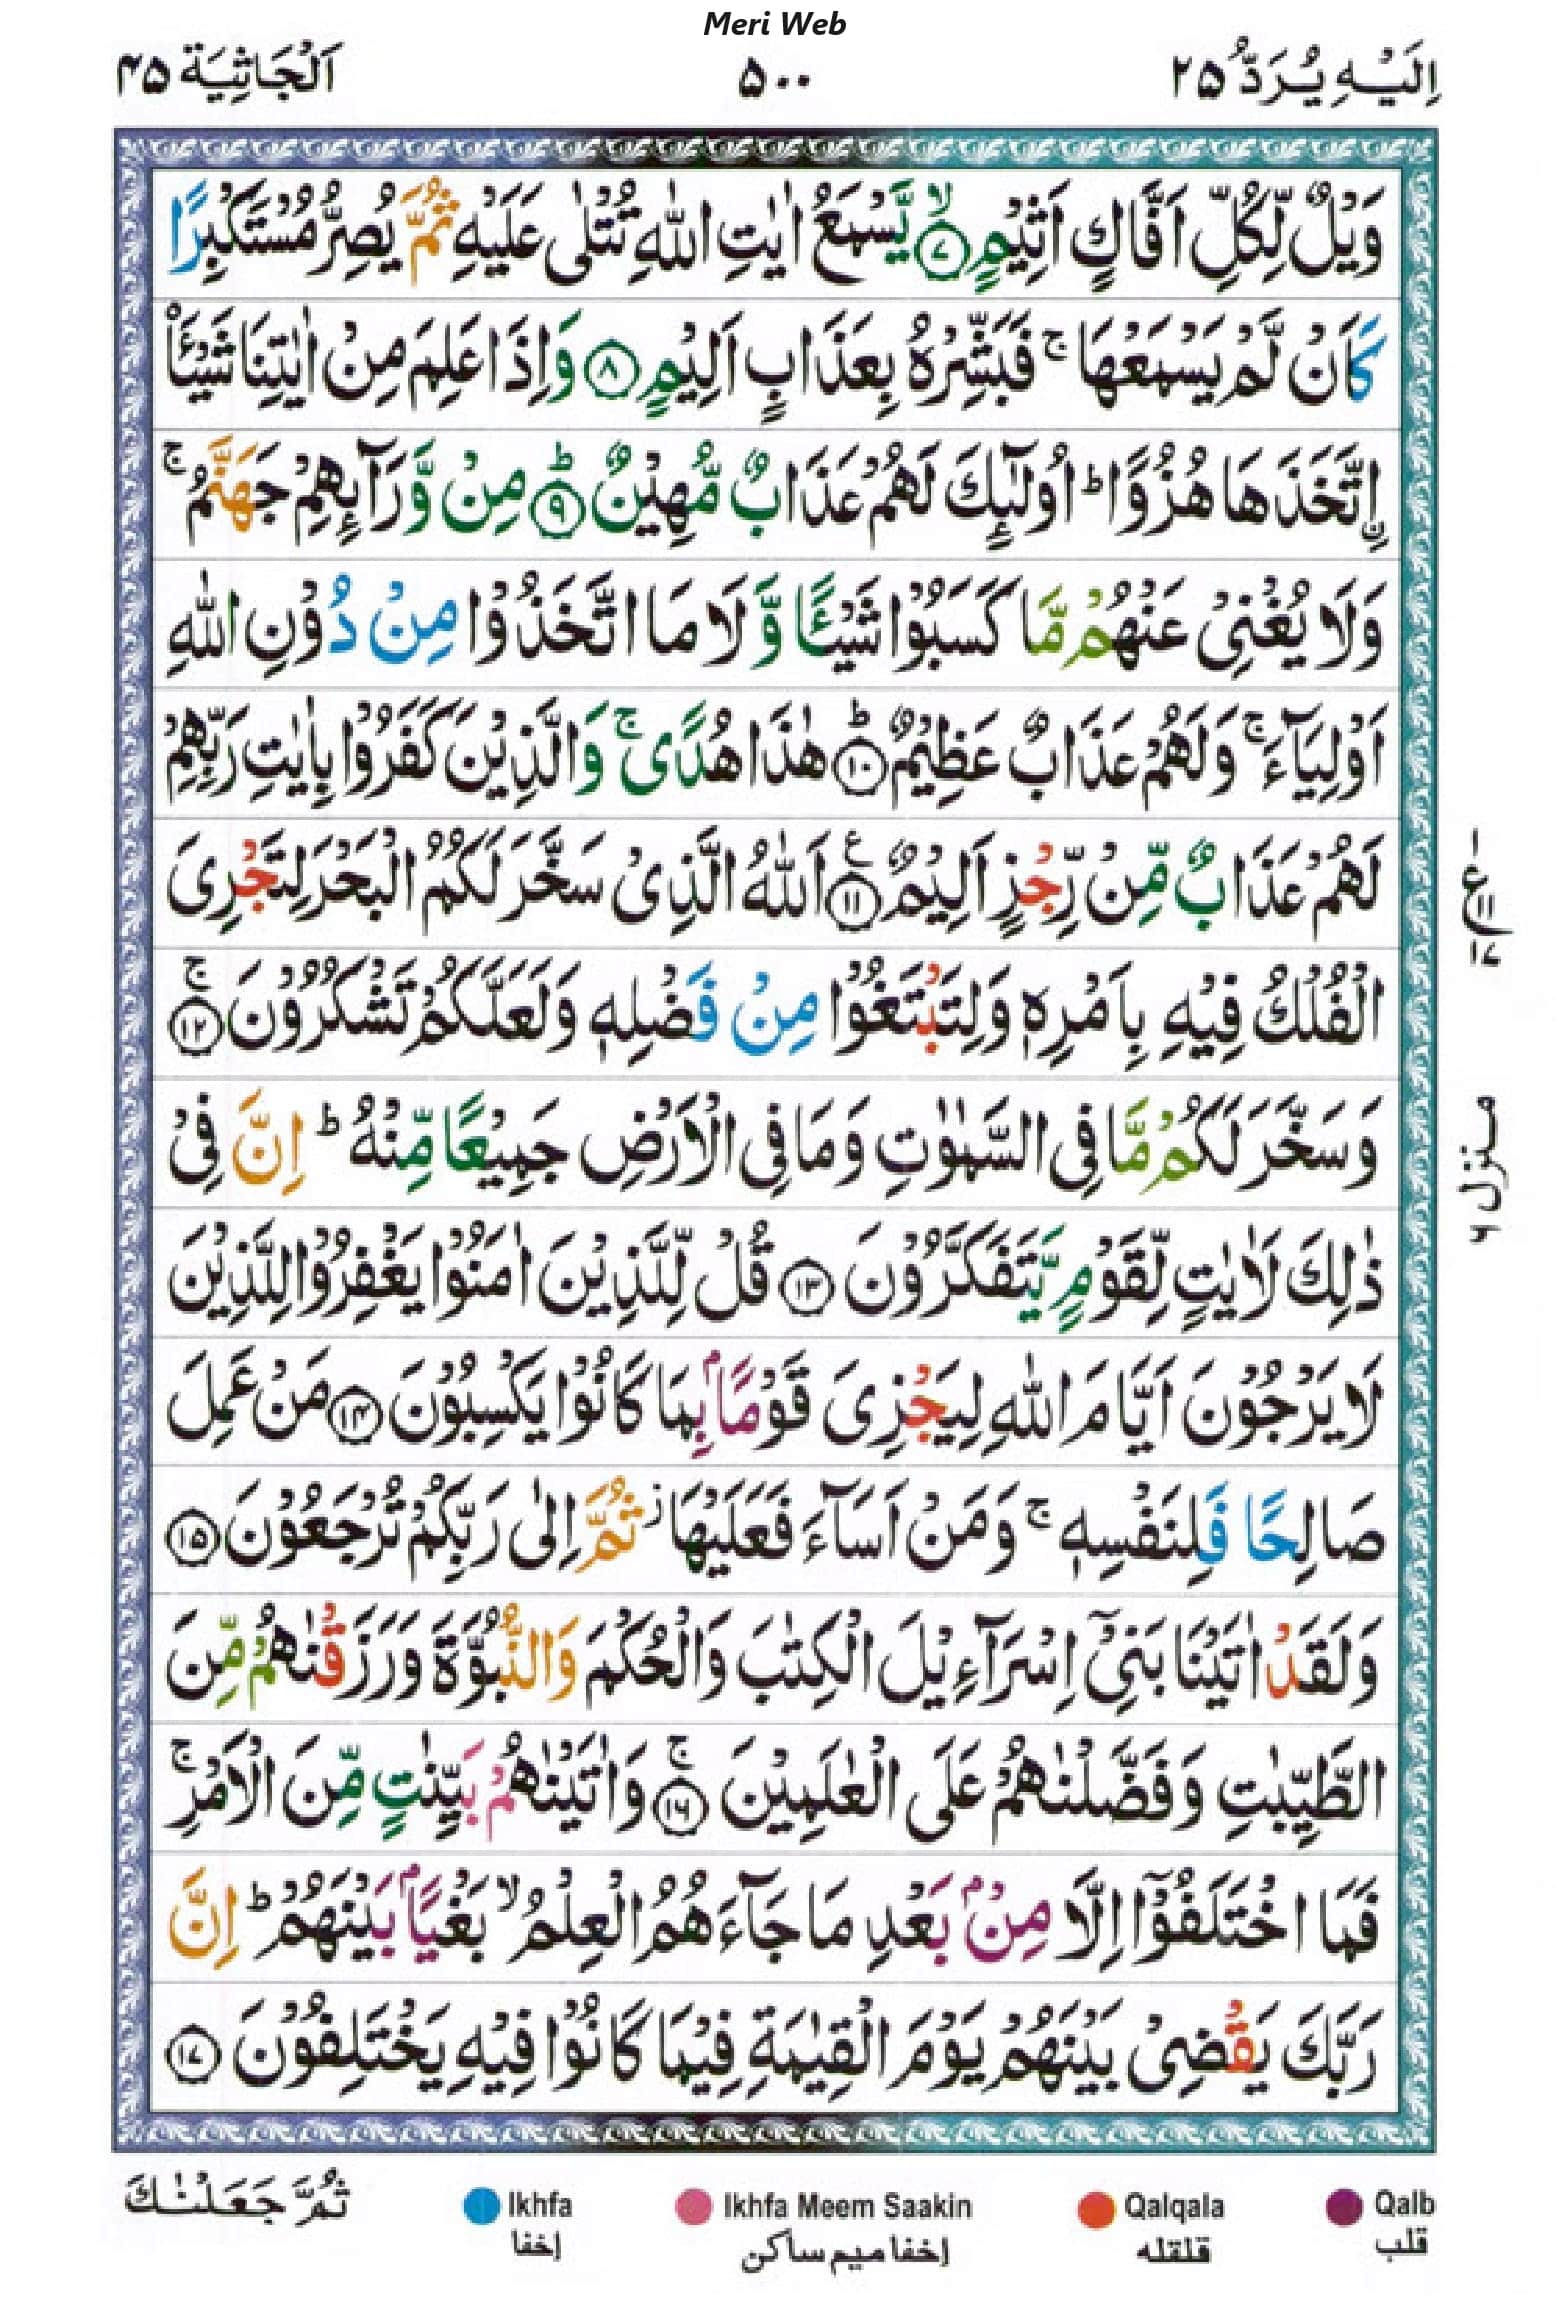 Meri Web
اِلَیْهِ یُرَدُّ ۲۵
۵۰۰
اَلْجَاثِیَة ۴۵
وَیْلٌ لِّكُلِّ اَفَّاكٍ اَثِیْمٍ ۙ۷ یَّسْمَعُ اٰیٰتِ اللّٰهِ تُتْلٰی عَلَیْهِ ثُمَّ یُصِرُّ مُسْتَكْبِرًا
كَاَنْ لَّمْ یَسْمَعْهَا ۚ فَبَشِّرْهُ بِعَذَابٍ اَلِیْمٍ ۸ وَ اِذَا عَلِمَ مِنْ اٰیٰتِنَا شَیْـَٔا
اِ۟تَّخَذَهَا هُزُوًا ؕ اُولٰٓىِٕكَ لَهُمْ عَذَابٌ مُّهِیْنٌ ؕ۹ مِنْ وَّرَآىِٕهِمْ جَهَنَّمُ ۚ
وَ لَا یُغْنِیْ عَنْهُمْ مَّا كَسَبُوْا شَیْـًٔا وَّ لَا مَا اتَّخَذُوْا مِنْ دُوْنِ اللّٰهِ
اَوْلِیَآءَ ۚ وَ لَهُمْ عَذَابٌ عَظِیْمٌ ؕ۱۰ هٰذَا هُدًی ۚ وَ الَّذِیْنَ كَفَرُوْا بِاٰیٰتِ رَبِّهِمْ
لَهُمْ عَذَابٌ مِّنْ رِّجْزٍ اَلِیْمٌ ۱۱ع اَللّٰهُ الَّذِیْ سَخَّرَ لَكُمُ الْبَحْرَ لِتَجْرِیَ
الْفُلْكُ فِیْهِ بِاَمْرِهٖ وَ لِتَبْتَغُوْا مِنْ فَضْلِهٖ وَ لَعَلَّكُمْ تَشْكُرُوْنَ ۚ۱۲
وَ سَخَّرَ لَكُمْ مَّا فِی السَّمٰوٰتِ وَ مَا فِی الْاَرْضِ جَمِیْعًا مِّنْهُ ؕ اِنَّ فِیْ
ذٰلِكَ لَاٰیٰتٍ لِّقَوْمٍ یَّتَفَكَّرُوْنَ ۱۳ قُلْ لِّلَّذِیْنَ اٰمَنُوْا یَغْفِرُوْا لِلَّذِیْنَ
لَا یَرْجُوْنَ اَیَّامَ اللّٰهِ لِیَجْزِیَ قَوْمًۢا بِمَا كَانُوْا یَكْسِبُوْنَ ۱۴ مَنْ عَمِلَ
صَالِحًا فَلِنَفْسِهٖ ۚ وَ مَنْ اَسَآءَ فَعَلَیْهَا ؗ ثُمَّ اِلٰی رَبِّكُمْ تُرْجَعُوْنَ ۱۵
وَ لَقَدْ اٰتَیْنَا بَنِیْۤ اِسْرَآءِیْلَ الْكِتٰبَ وَ الْحُكْمَ وَ النُّبُوَّةَ وَ رَزَقْنٰهُمْ مِّنَ
الطَّیِّبٰتِ وَ فَضَّلْنٰهُمْ عَلَی الْعٰلَمِیْنَ ۚ۱۶ وَ اٰتَیْنٰهُمْ بَیِّنٰتٍ مِّنَ الْاَمْرِ ۚ
فَمَا اخْتَلَفُوْۤا اِلَّا مِنْۢ بَعْدِ مَا جَآءَهُمُ الْعِلْمُ ۙ بَغْیًۢا بَیْنَهُمْ ؕ اِنَّ
رَبَّكَ یَقْضِیْ بَیْنَهُمْ یَوْمَ الْقِیٰمَةِ فِیْمَا كَانُوْا فِیْهِ یَخْتَلِفُوْنَ ۱۷
ع
۱۱
منزل ۶
ثُمَّ جَعَلْنٰكَ
Ikhfa
إخفا
Ikhfa Meem Saakin
إخفا ميم ساكن
Qalqala
قلقله
Qalb
قلب